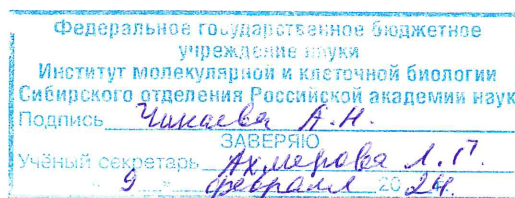 Федеральное государственное бюджетное
учреждение науки
Институт молекулярной и клеточной биологии
Сибирского отделения Российской академии наук
Подпись А.Н.
ЗАВЕРЯЮ
Учёный секретарь Ахмерова Л.Г.
" 9 " февраля 20 24.